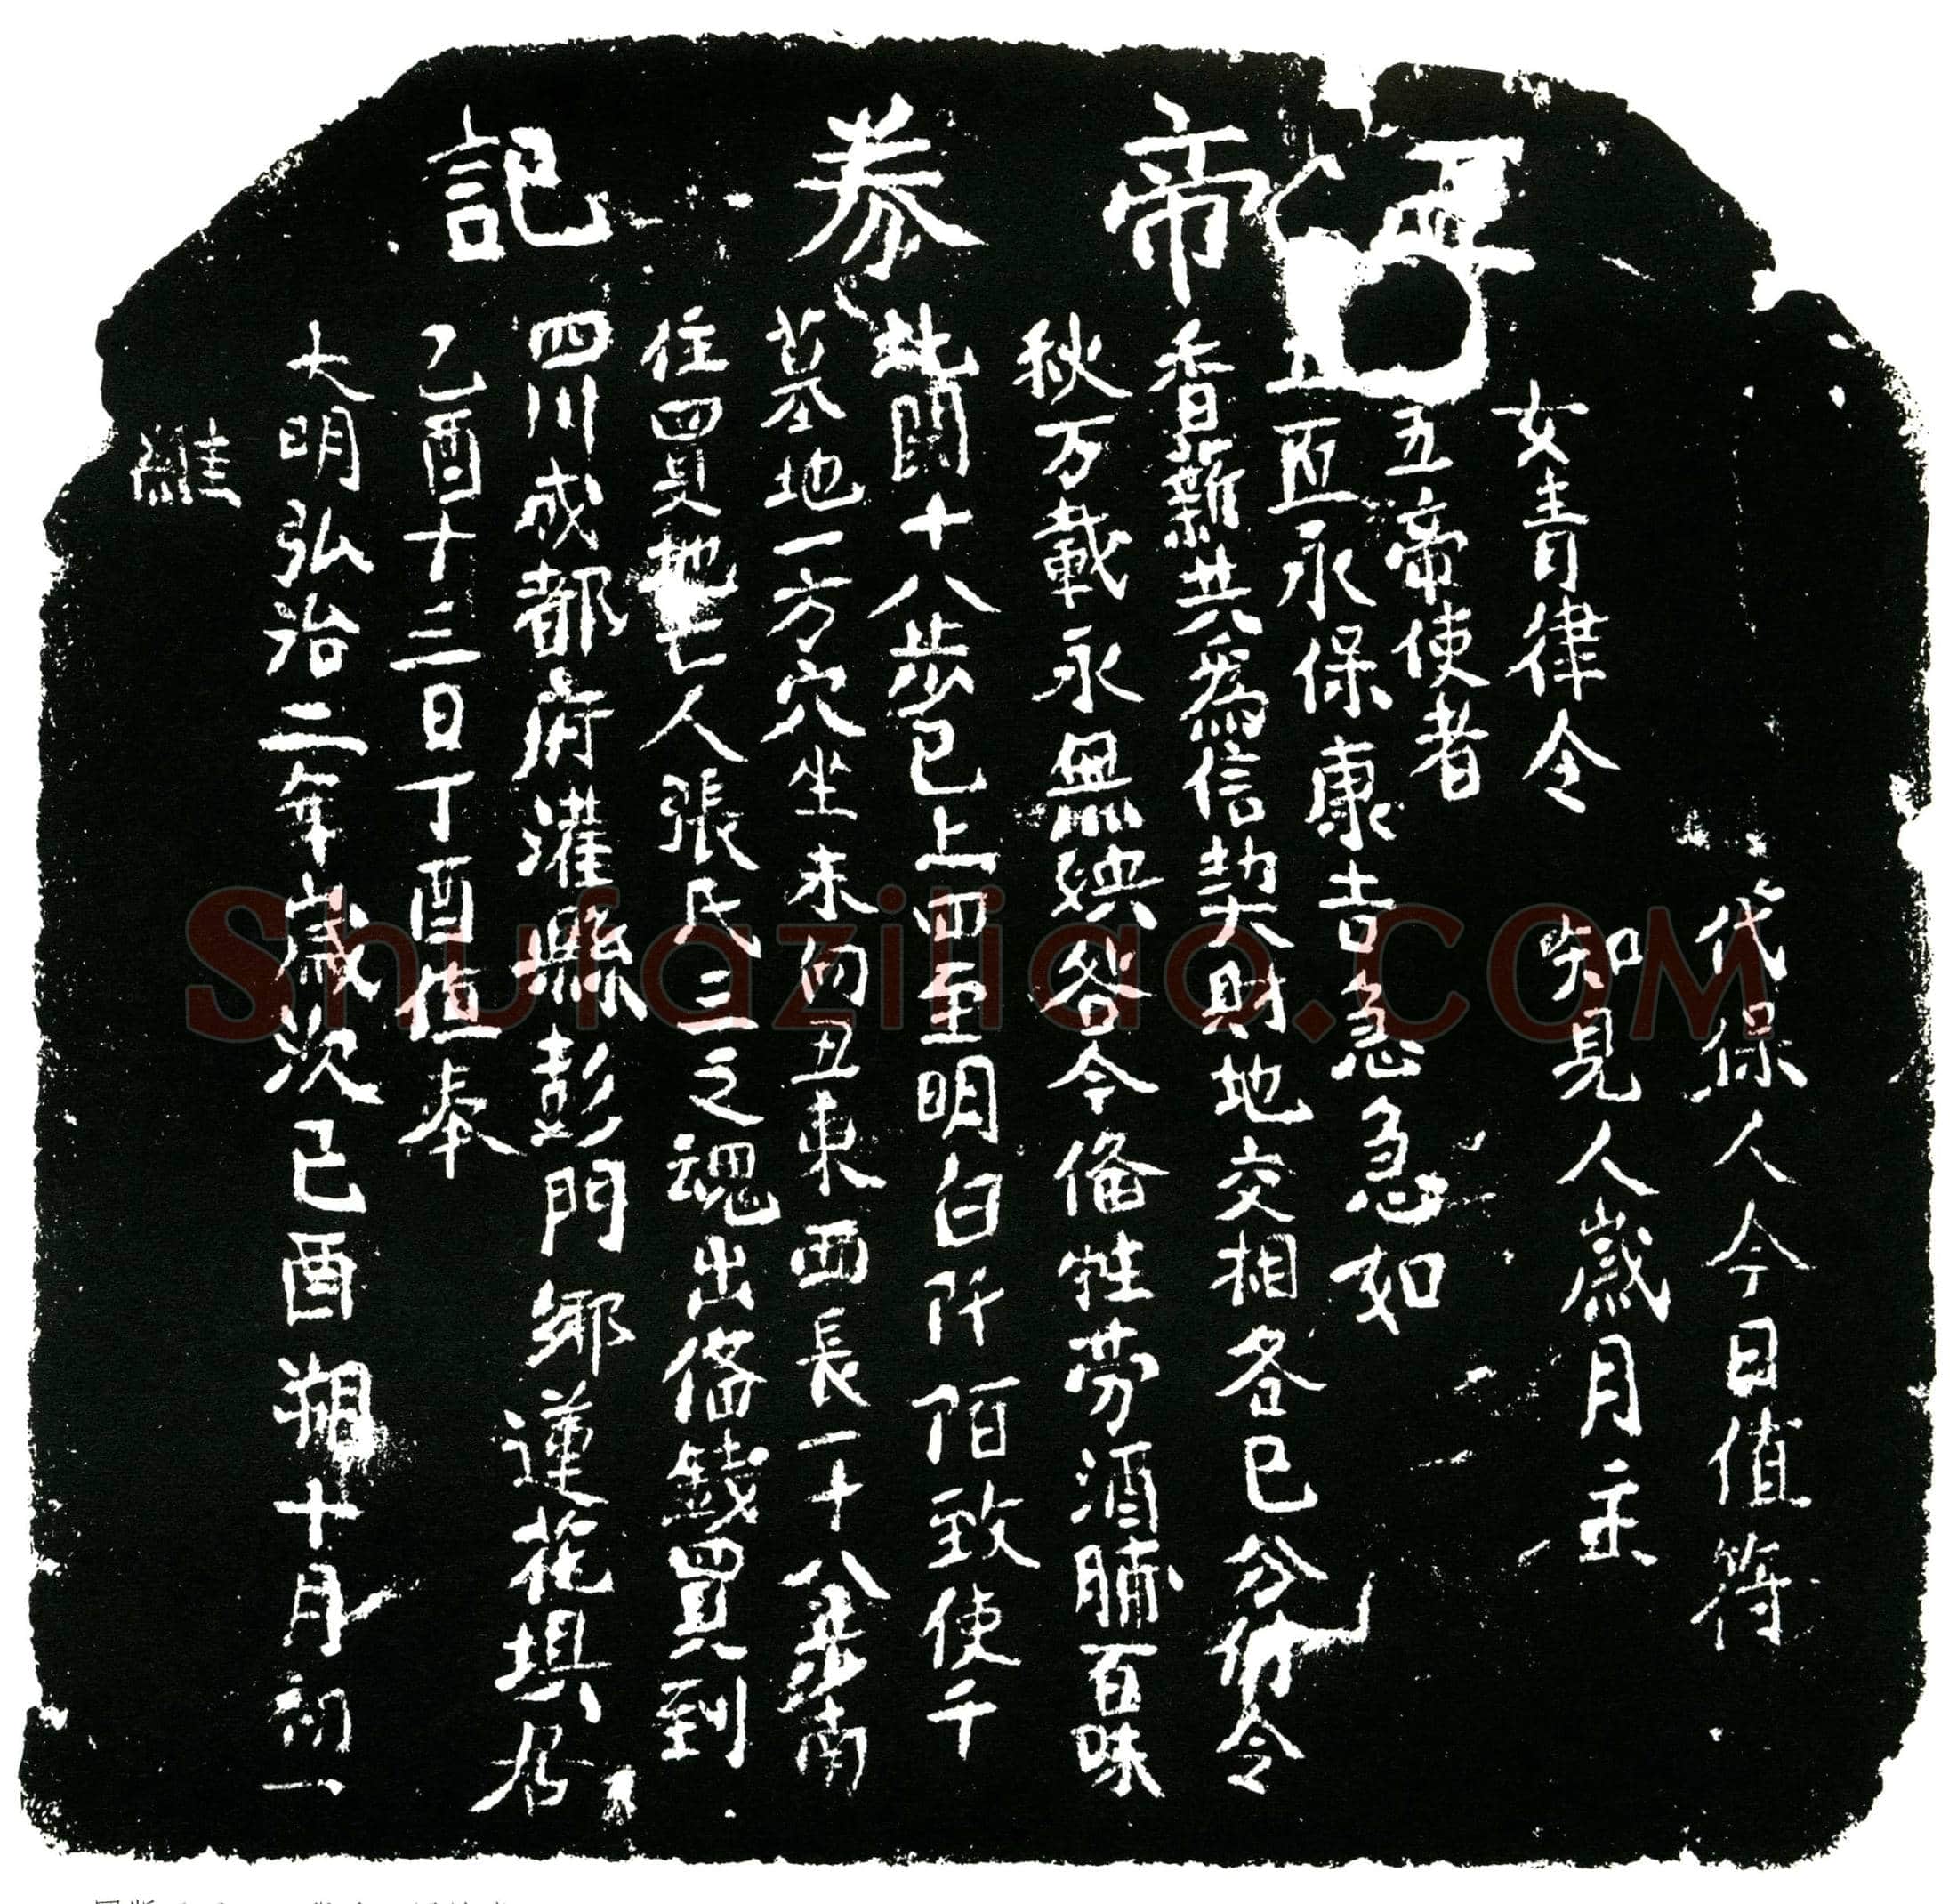 帝券記
維
大明弘治二年歲次已酉朔十月初一
乙酉十三日丁酉值奉
四川成都府灌縣彭門鄉蓮花垻居
住買地亡人張氏三之魂出俻錢買到
墓地一方穴坐未向丑東西長一十八步南
北闊十八步已上四至明白阡陌致使千
秋万載永無殃咎今俻牲劳酒脯百味
香薪共為信契財地交相各已分付令
工匠永保康吉急急如
五帝使者
女青律令
知見人歲月主
代保人今日值符
Shufaziliao.COM